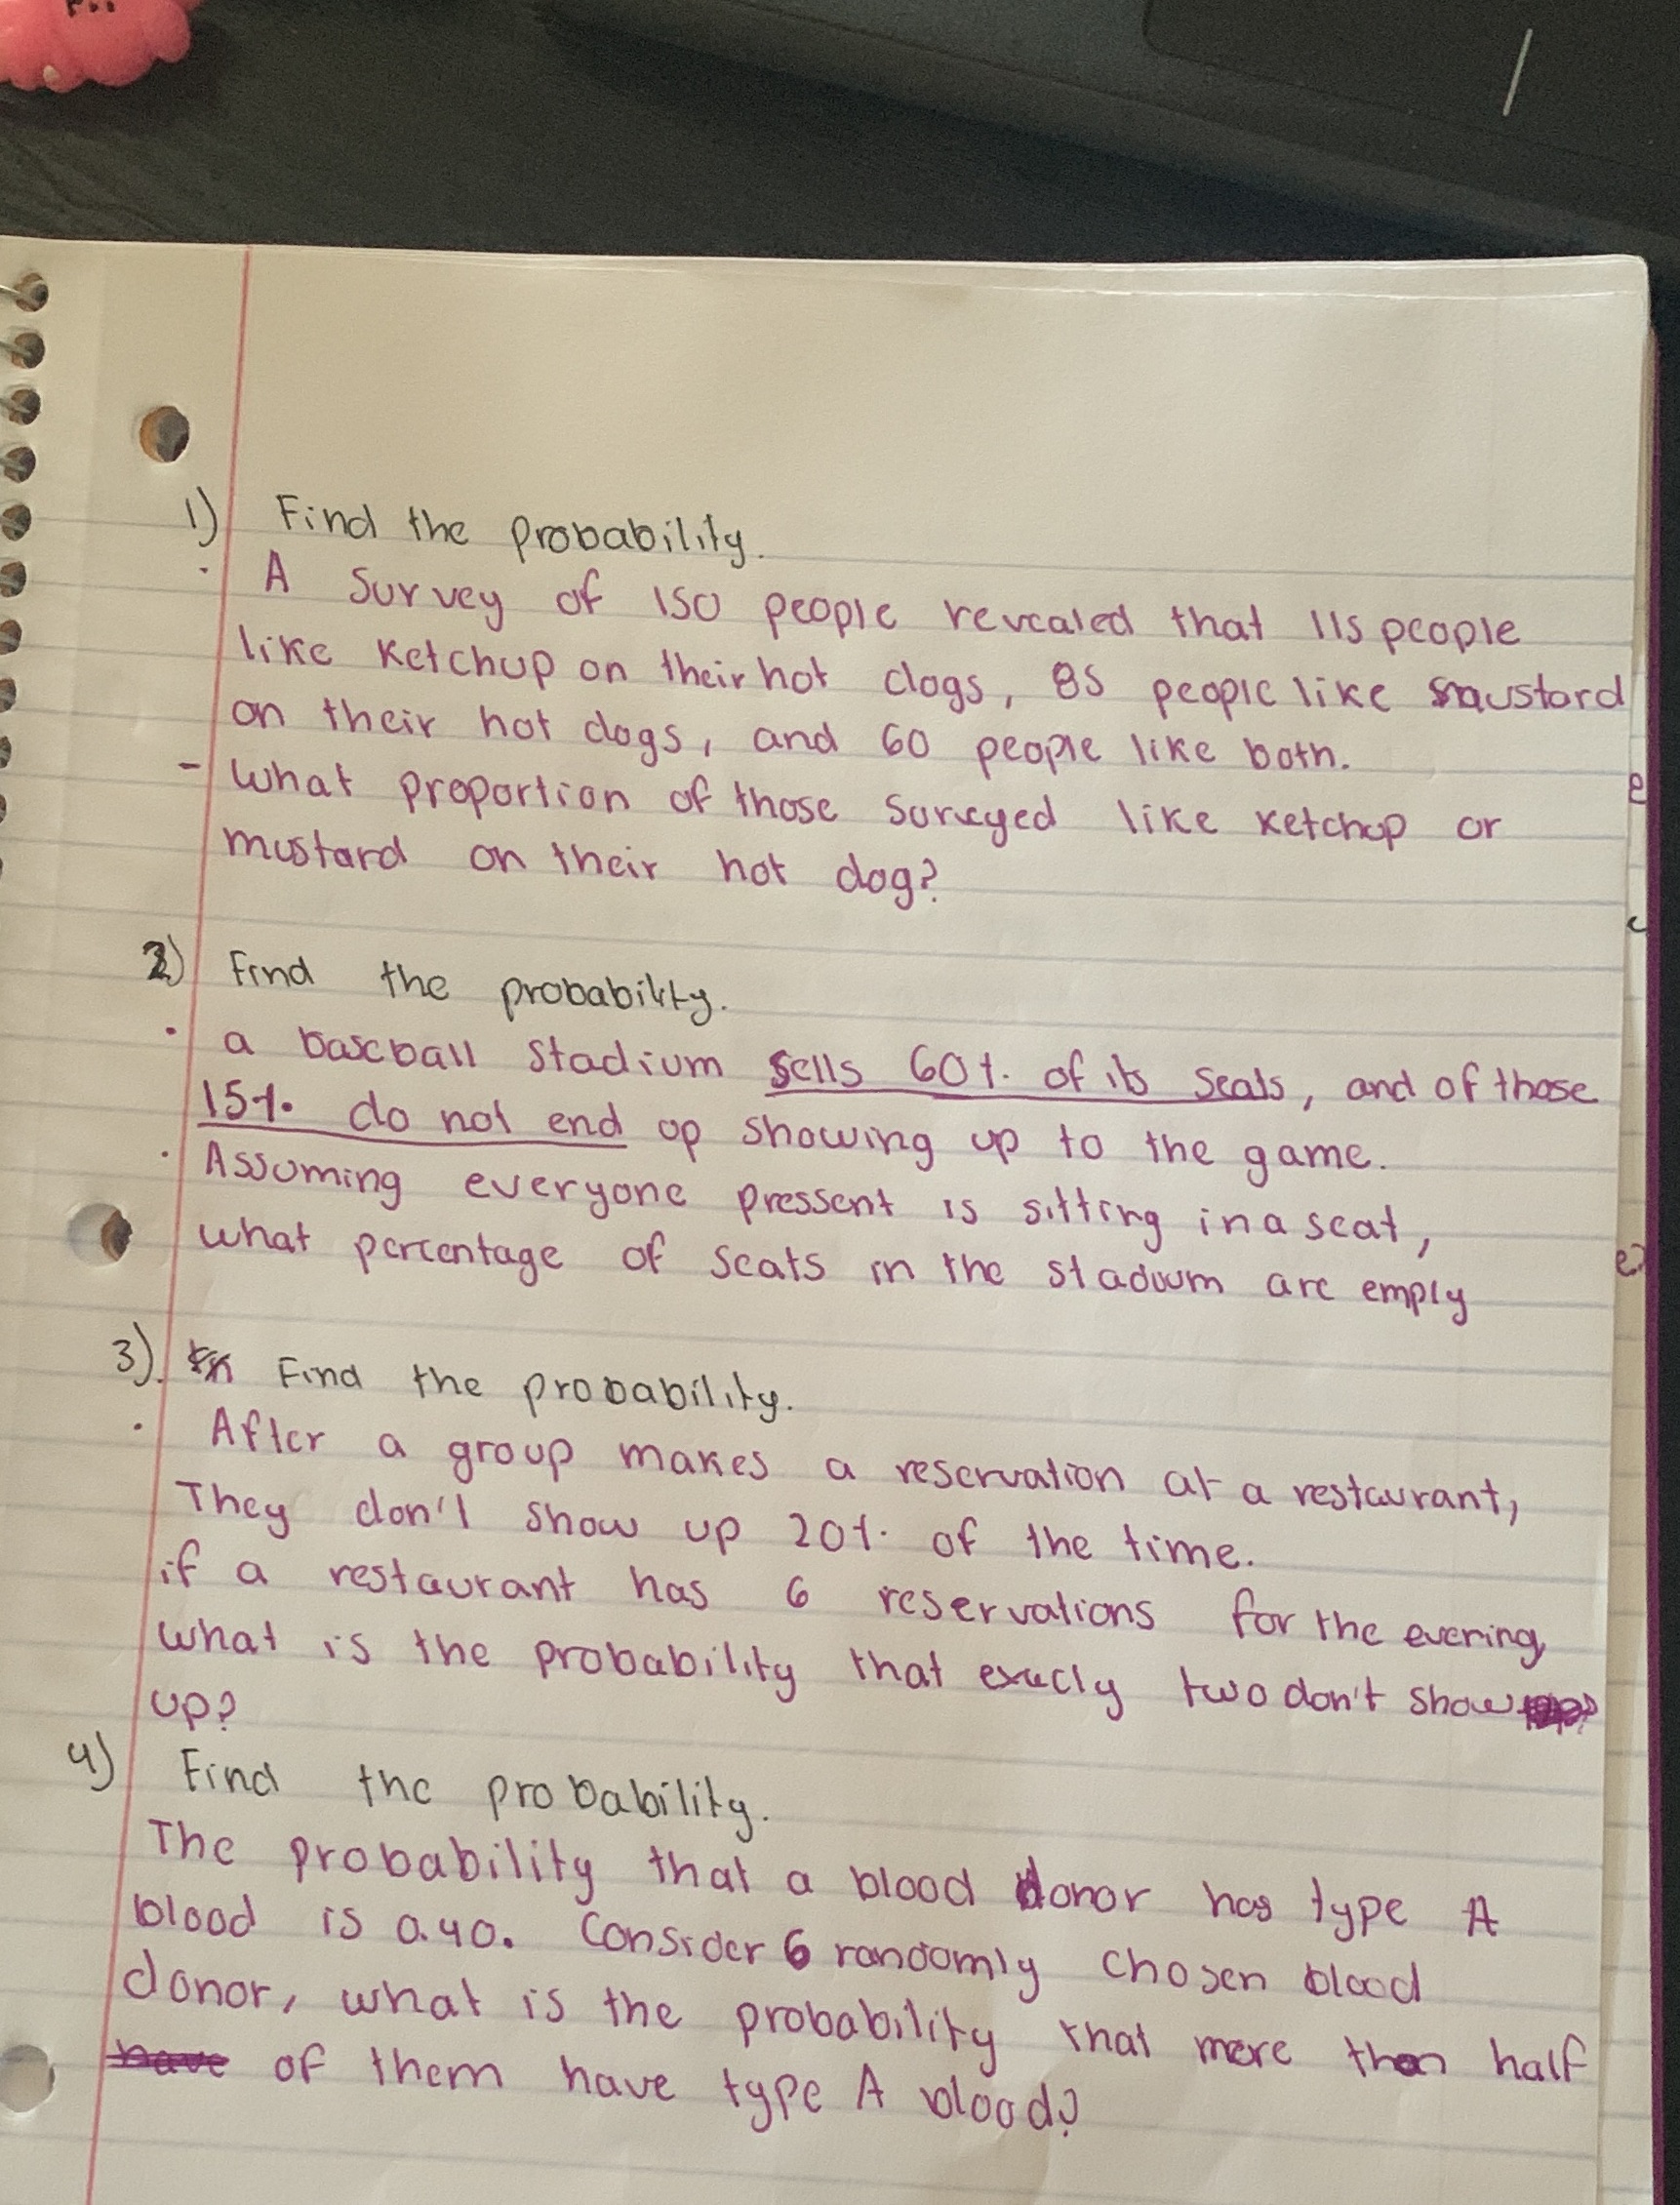 1) Find the probability.
· A Survey of 150 people revealed that 115 people
like Ketchup on their hot dogs, 85 people like maustard
on their hot dogs, and 60 people like both.
- What proportion of those Surveyed like Ketchup or
mustard on their hot dog?
2) Find the probability.
· a baseball Stadium Sells 60% of its Seats, and of those
15% do not end up showing up to the game.
· Assuming everyone pressent is sitting in a seat,
what percentage of seats in the stadium are emply
3). Find the probability.
· After a group makes a reservation at a restaurant,
They don't show up 20% of the time.
if a restaurant has 6 reservations for the evening,
what is the probability that exacly two don't show
up?
4) Find the probability.
The probability that a blood donor has type A
blood is 0.40. Consider 6 randomly chosen blood
donor, what is the probability that more than half
have of them have type A blood?
e
c
e)